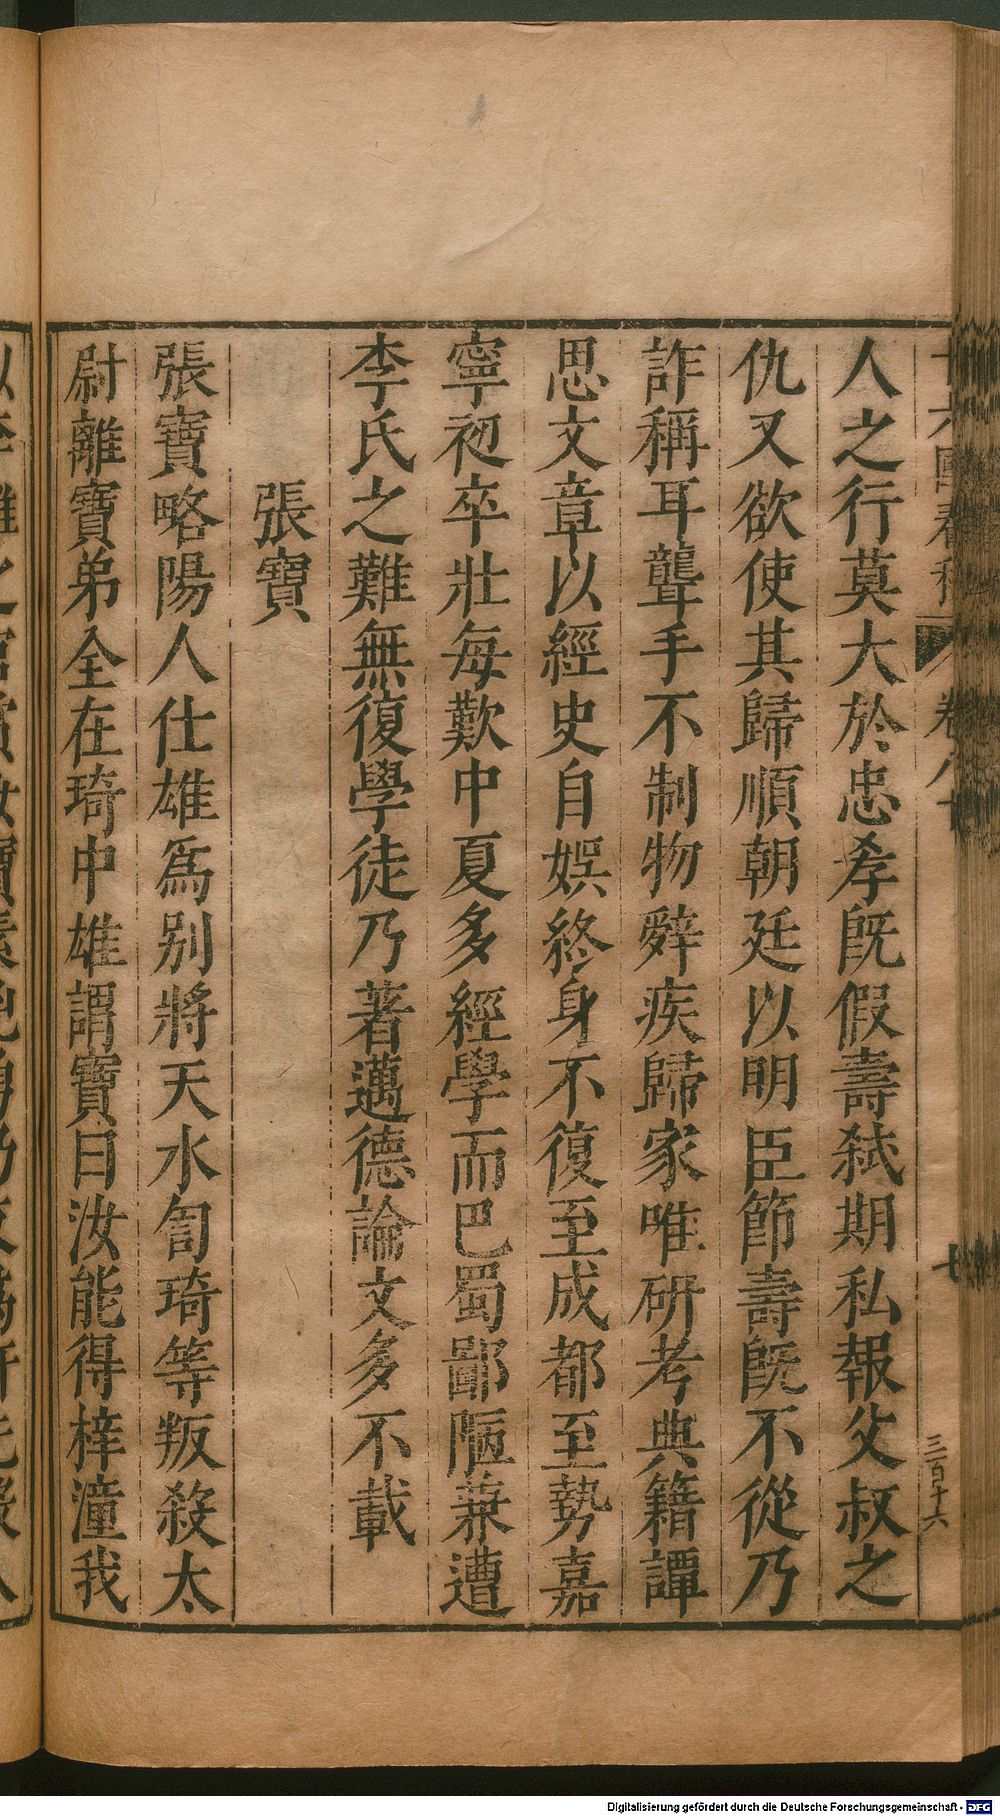 人之行莫大於忠孝旣假壽弑期私報父叔之
仇又欲使其歸順朝廷以明臣節壽旣不從乃
詐稱耳聾手不制物辤疾歸家唯硏考典籍譚
思文章以經史自娱終身不復至成都至勢嘉
寧初卒壯每歎中夏多經學而巴蜀鄙陋兼遭
李氏之難無復學徒乃著邁德論文多不載
張寶
張寶略陽人仕雄爲别將天水訇琦等叛殺太
尉離寶弟全在琦中雄謂寶曰汝能得梓潼我
三百十六
Digitalisierung gefördert durch die Deutsche Forschungsgemeinschaft - DFG